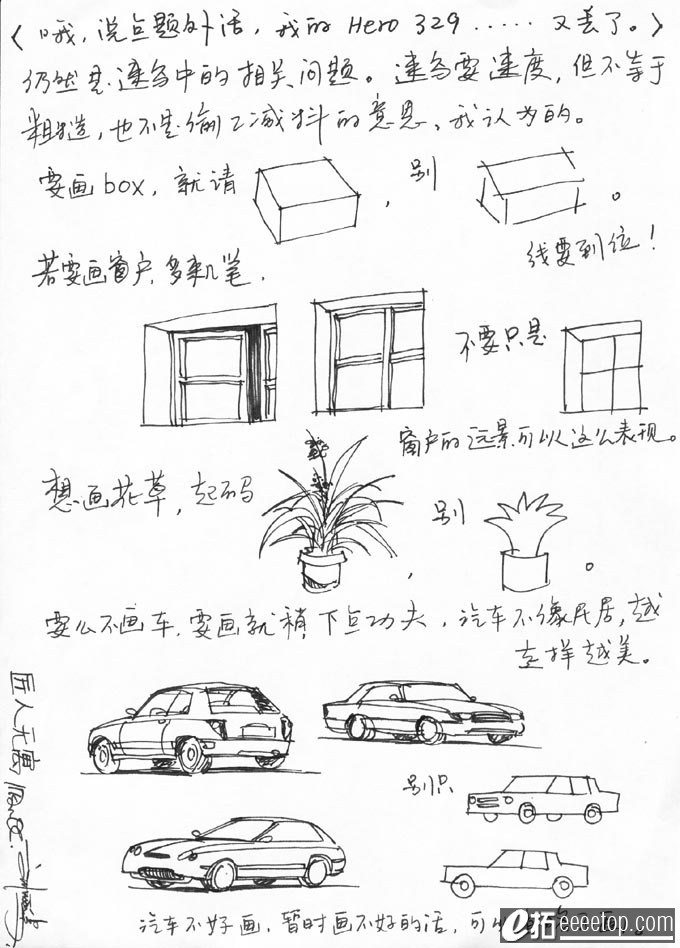 〈哦，说点题外话，我的Hero 329 …… 又丢了。〉
仍然是速写中的相关问题。速写要速度，但不等于
粗糙，也不是偷工减料的意思，我认为的。
要画box，就请 ，别 。
线要到位！
若要画窗户，多来几笔，
不要只是
窗户的远景可以这么表现。
想画花草，起码 ，别 。
要么不画车，要画就稍下点功夫，汽车不像民居，越
走样越美。
别只
匠人无寓
汽车不好画，暂时画不好的话，可以
e拓 eeeetop.com